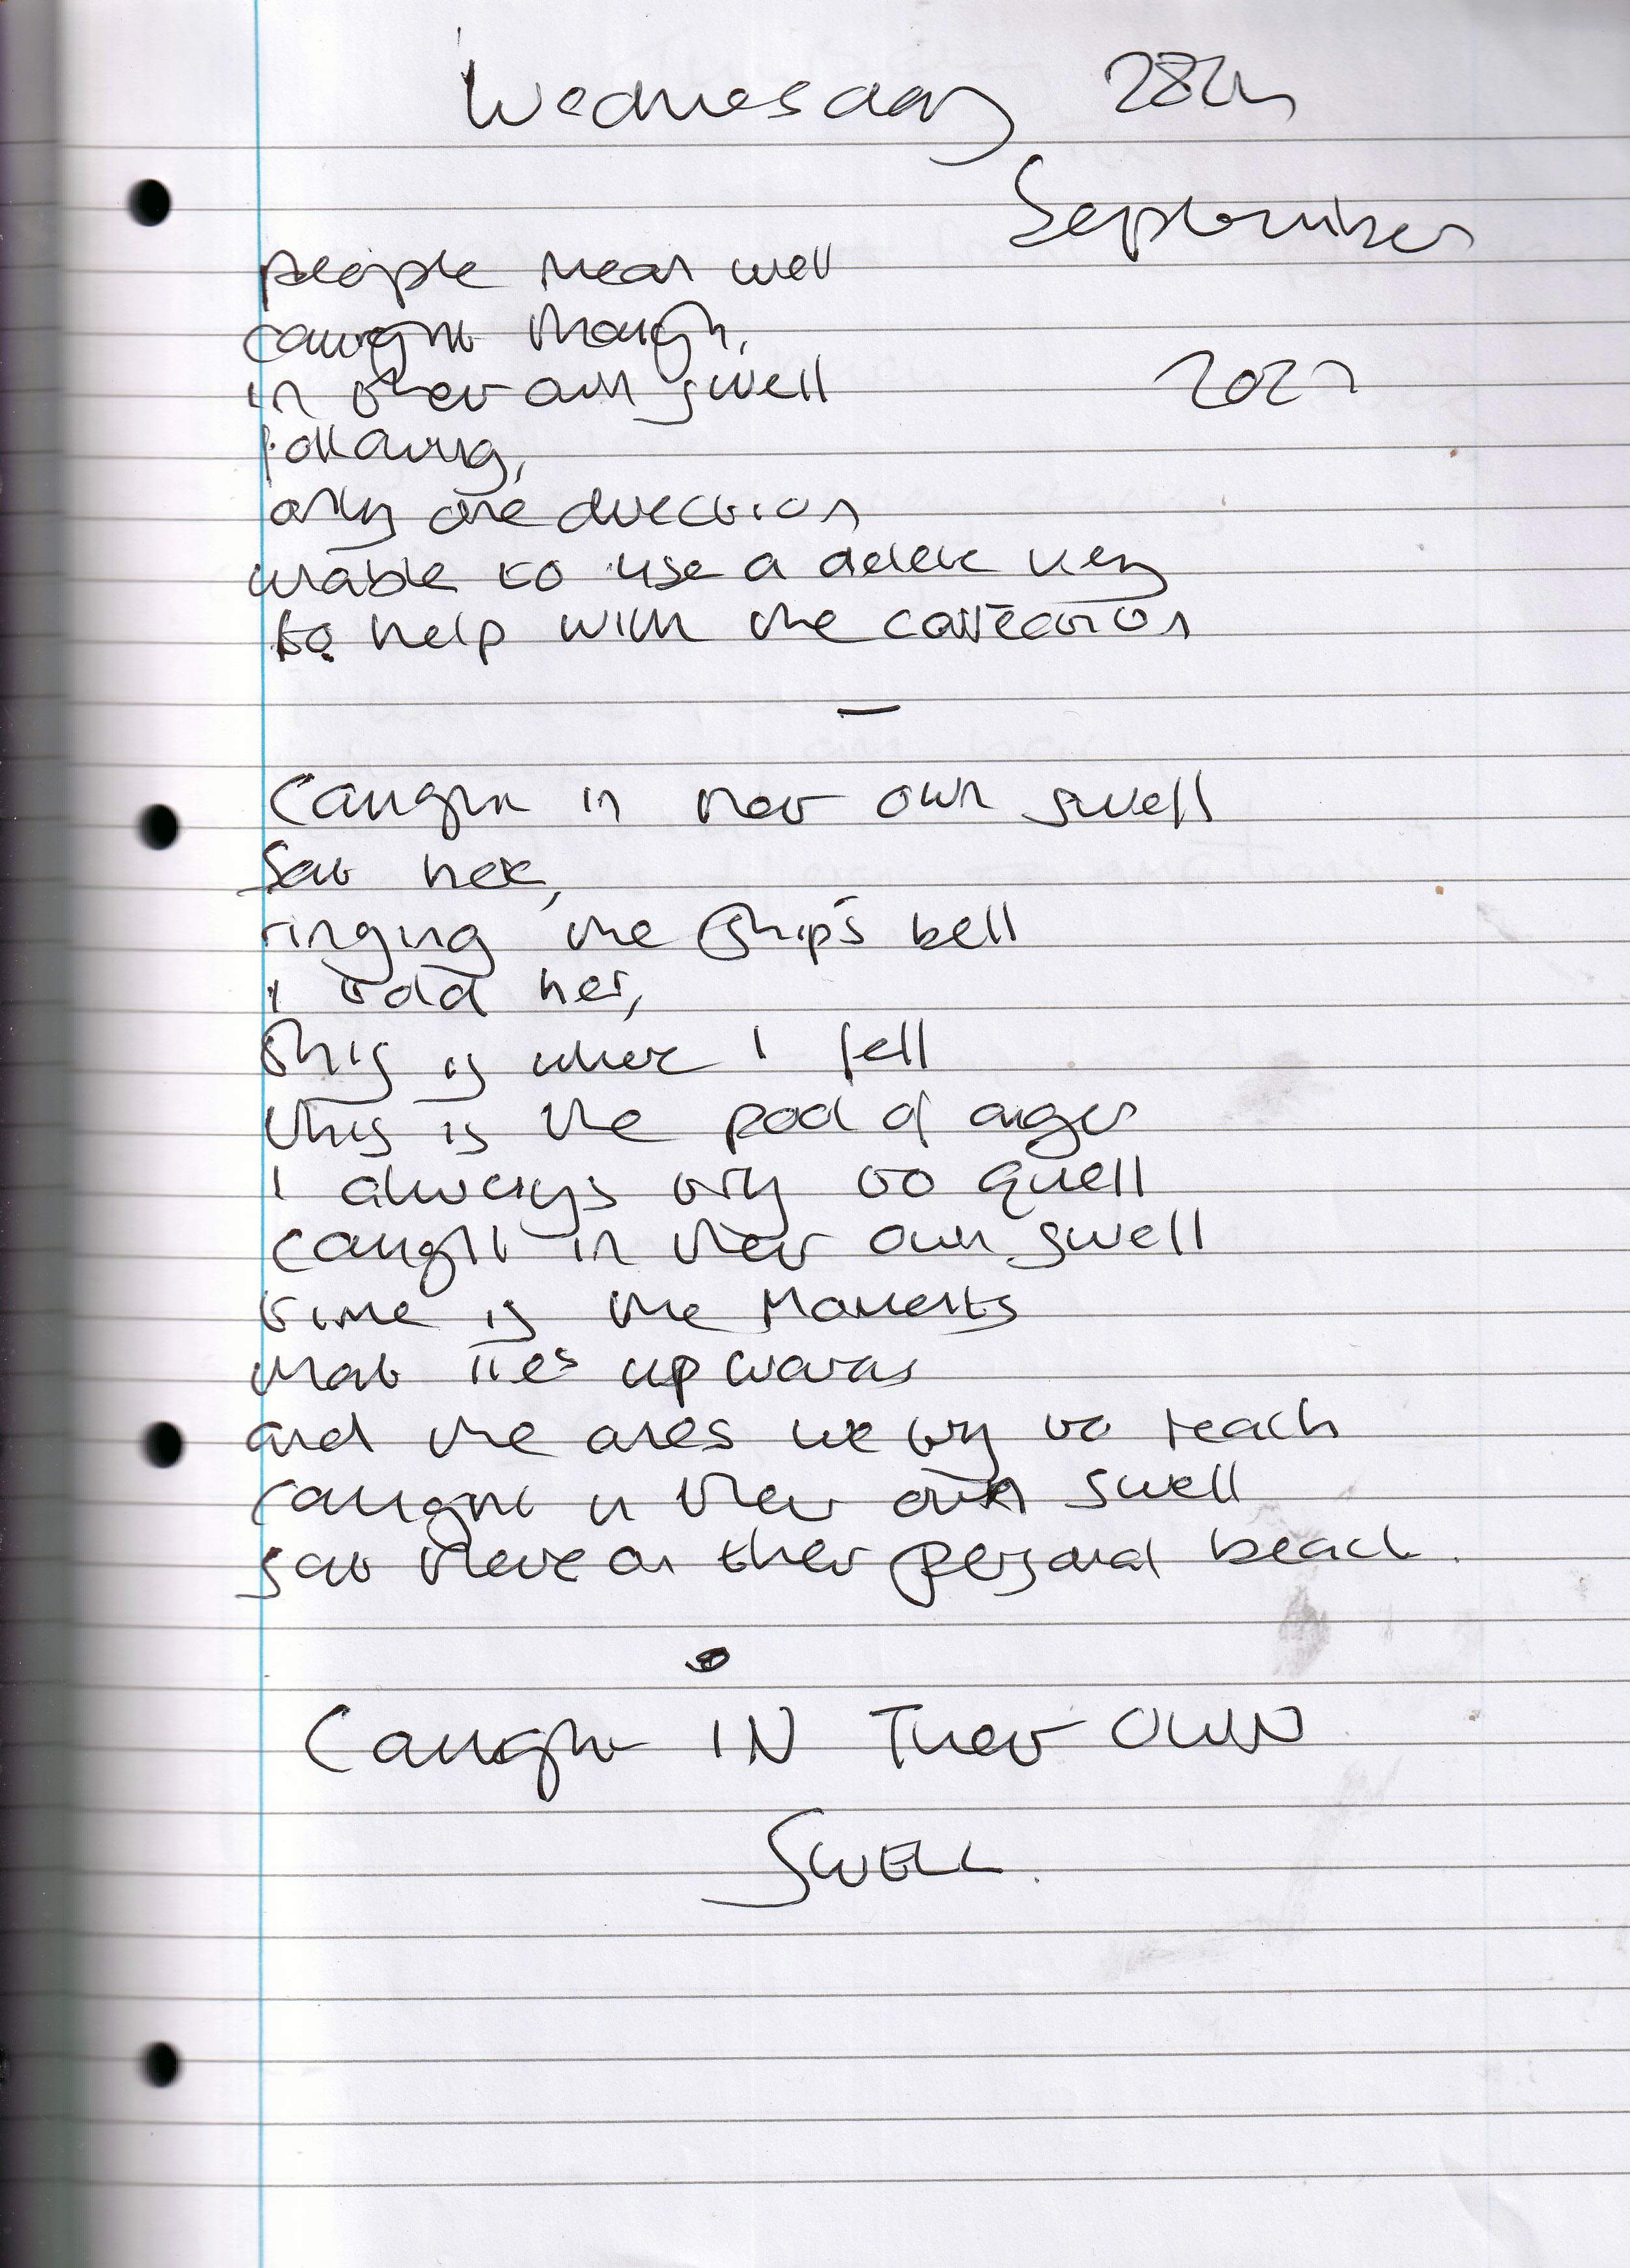 Wednesday 28th
September
2022
people mean well
caught though,
in their own swell
following,
only one direction
unable to use a delete key
to help with the correction
—
Caught in their own swell
Sat here,
ringing the ship's bell
I told her,
this is where I fell
this is the pool of anger
I always try to quell
caught in their own swell
time is the Moments
that lies upwards
and the ones we try to reach
caught in their own swell
sat there on their personal beach.
Caught IN Their OWN
SWELL.